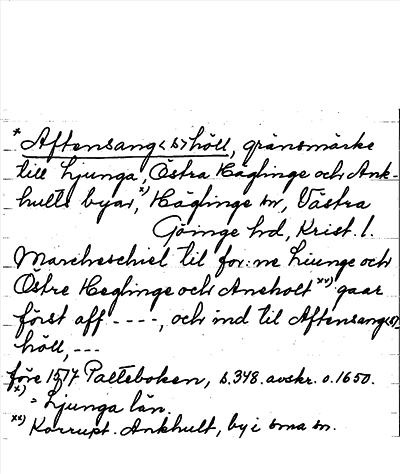 * Aftensang<s>höll, gränsmärke
till Ljunga, Östra Häglinge och Ank-
hults byar,x) Häglinge sn, Västra
Göinge hd, Krist. l.
Marcheschiel til for:ne Liunge och
Östre Heglinge och Aneholt xx) gaar
först aff ----, och ind til Aftensang<s>
höll, ---
före 1577 Palteboken, s. 348. avskr. o. 1650.
x) = Ljunga län.
xx) Korrupt. Ankhult, by i sma sn.